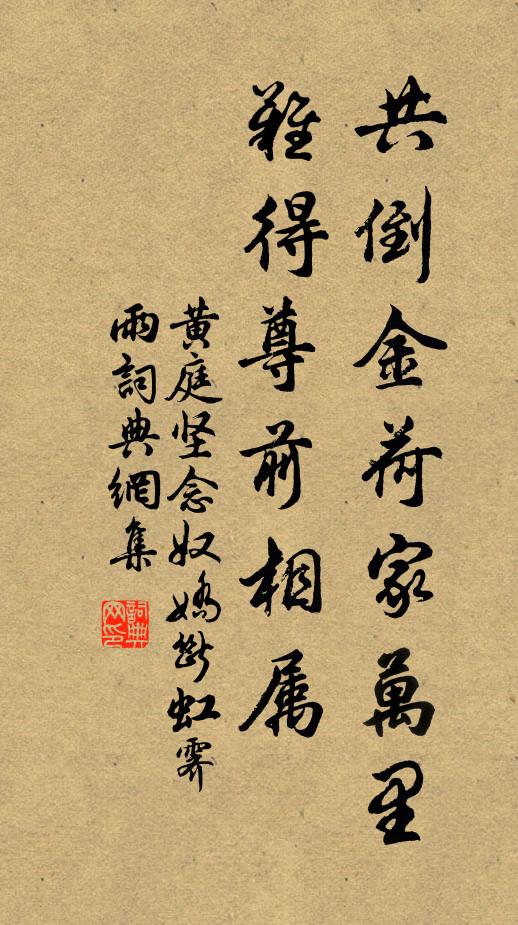 共倒金荷家萬里
難得尊前相属
黄庭坚念奴嬌斷虹霽
雨詞典網集
詞典網印